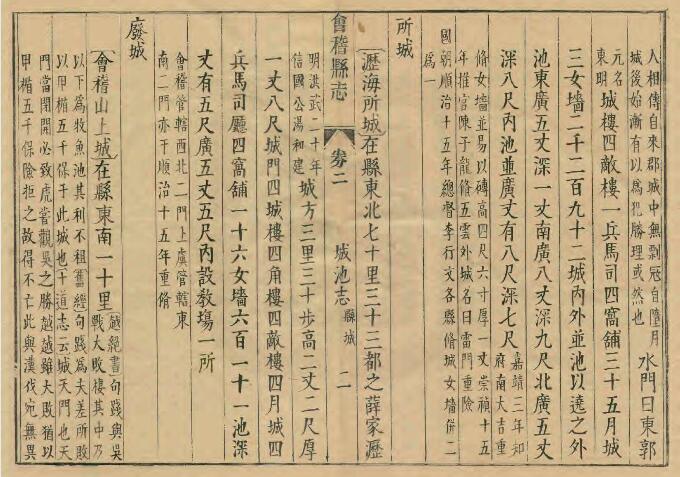 人相傳自來郡城中無剽冠自墮月
城後始漸有以爲犯勝理或然也
水門曰東郭
元名
東明
城樓四敵樓一兵馬司四窩舖三十五月城
三女墻二千二百九十二城內外並池以遶之外
池東廣五丈深一丈南廣八丈深九尺北廣五丈
深八尺內池並廣丈有八尺深七尺
嘉靖三年知
府南大吉重
脩女墻並易以磚高四尺六寸厚一丈崇禎十五
年推官陳于龍脩五雲外城名曰雷門重險
國朝順治十五年總督李行文各縣脩城女墻併二
爲一
所城
瀝海所城在縣東北七十里三十三都之薛家瀝
會稽縣志 卷二 城池志 縣城 二
明洪武二十年
信國公湯和建
城方三里三十步高二丈二尺厚
一丈八尺城門四城樓四角樓四敵樓四月城四
兵馬司廳四窩舖一十六女墻六百一十一池深
丈有五尺廣五丈五尺內設教塲一所
會稽管轄西北二門上虞管轄東
南二門亦于順治十五年重脩
廢城
會稽山上城在縣東南一十里
越絕書句踐與吳
戰大敗棲其中乃
以下爲牧魚池其利不租舊經句踐爲夫差所敗
以甲楯五千保于此城也十道志云城天門也天
門當閉開必致虎嘗觀吳之勝越越雖大敗猶以
甲楯五千保險拒之故得不亡此與漢伐宛無異